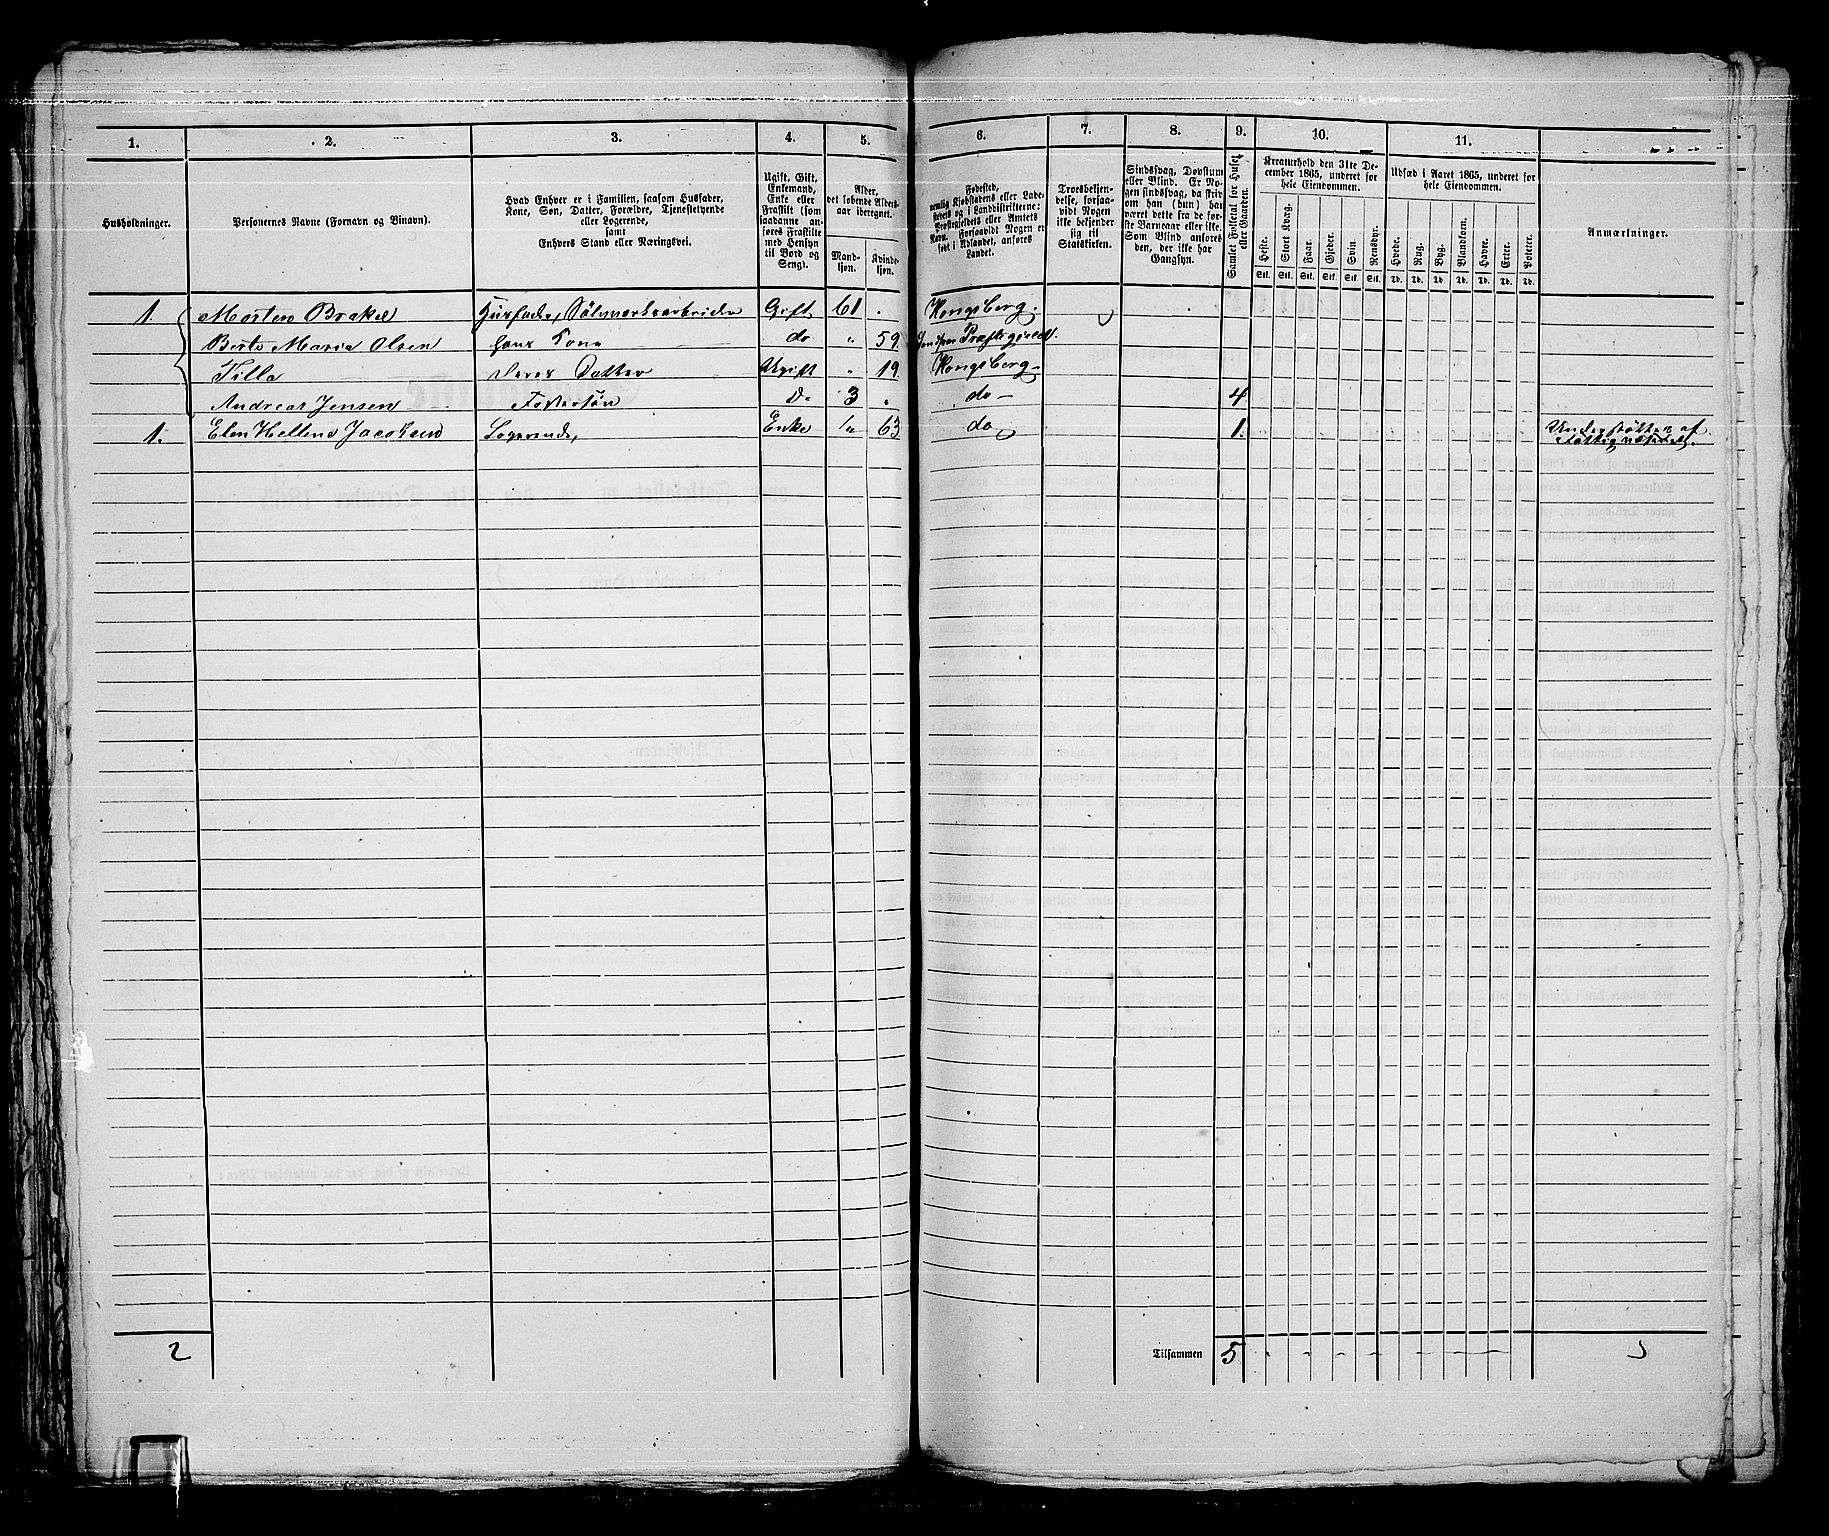 1. 2. 3. 4. 5. 6. 7. 8. 9. 10. 11.
Husholdninger.
Personernes Navne (Fornavn og Binavn).
Hvad Enhver er i Familien, saasom Husfader,
Kone, Søn, Datter, Forældre, Tjenestetyende
eller Logerende,
samt
Enhvers Stand eller Næringsvei.
Ugift, Gift,
Enkemand,
Enke eller
Fraskilt (som
saadanne an-
føres Fraskilte
med Hensyn
til Bord og
Seng).
Alder,
det løbende Alders-
aar iberegnet.
Mand-
kjøn.
Kvinde-
kjøn.
Fødested,
nemlig Kjøbstadens eller Lade-
stedets og i Landdistrikterne:
Præstegjeldets eller Amtets
Navn. Forsaavidt Nogen er
født i Udlandet, anføres
Landet.
Troesbekjen-
delse, forsaa-
vidt Nogen
ikke bekjender
sig til
Statskirken.
Sindssvag, Døvstum
eller Blind. Er No-
gen sindssvag, da skrives
om han (hun) har
været dette fra de før-
ste Barneaar eller ikke.
Som Blind anføres
den, der ikke har
Gangsyn.
Samlet Folketal for Huset
eller Gaarden.
Kreaturhold den 31te De-
cember 1865, underet for
hele Eiendommen.
Heste. Stort Kvæg. Faar. Gjeder. Svin. Rensdyr.
Stk. Stk. Stk. Stk. Stk. Stk.
Udsæd i Aaret 1865, underet for
hele Eiendommen.
Hvede. Rug. Byg. Blandkorn. Havre. Erter. Poteter.
Td. Td. Td. Td. Td. Td. Td.
Anmærkninger.
1. Morten Brakel Husfader, Sølvværksarbeider Gift 61 Kongsberg.
Berte Maria Olsen hans Kone do 59 Præstegjeld.
Tilla Deres Datter Ugift 19 Kongsberg
Andreas Jensen Fostersøn Do 3 do 4
1. Elen Hellene Jacobsen Logerende, Enke 63 do 1. Understøttes af
Fattigvæsenet.
2 Tilsammen 5